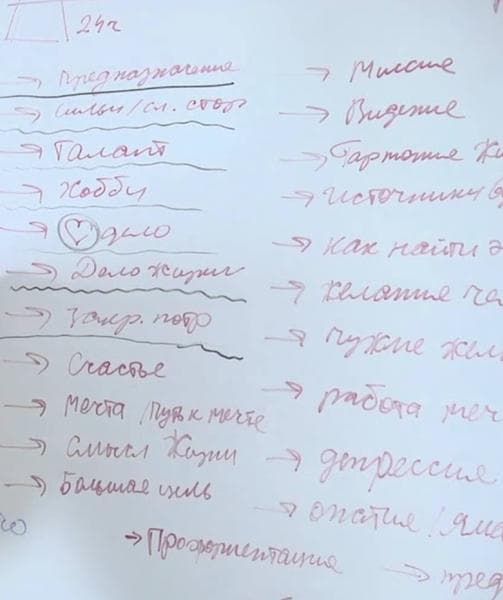 24ч
→ Предназначение
→ сильн/сл. стор
→ Талант
→ Хобби
→ ♡ дело
→ Дело жизни
→ Закр. потр
→ Счастье
→ Мечта / Путь к мечте
→ Смысл Жизни
→ Большая цель
→ Профориентация
→ Миссия
→ Видение
→ Гармония
→ Источники
→ как найти
→ желания
→ чужие
→ работа
→ депрессия